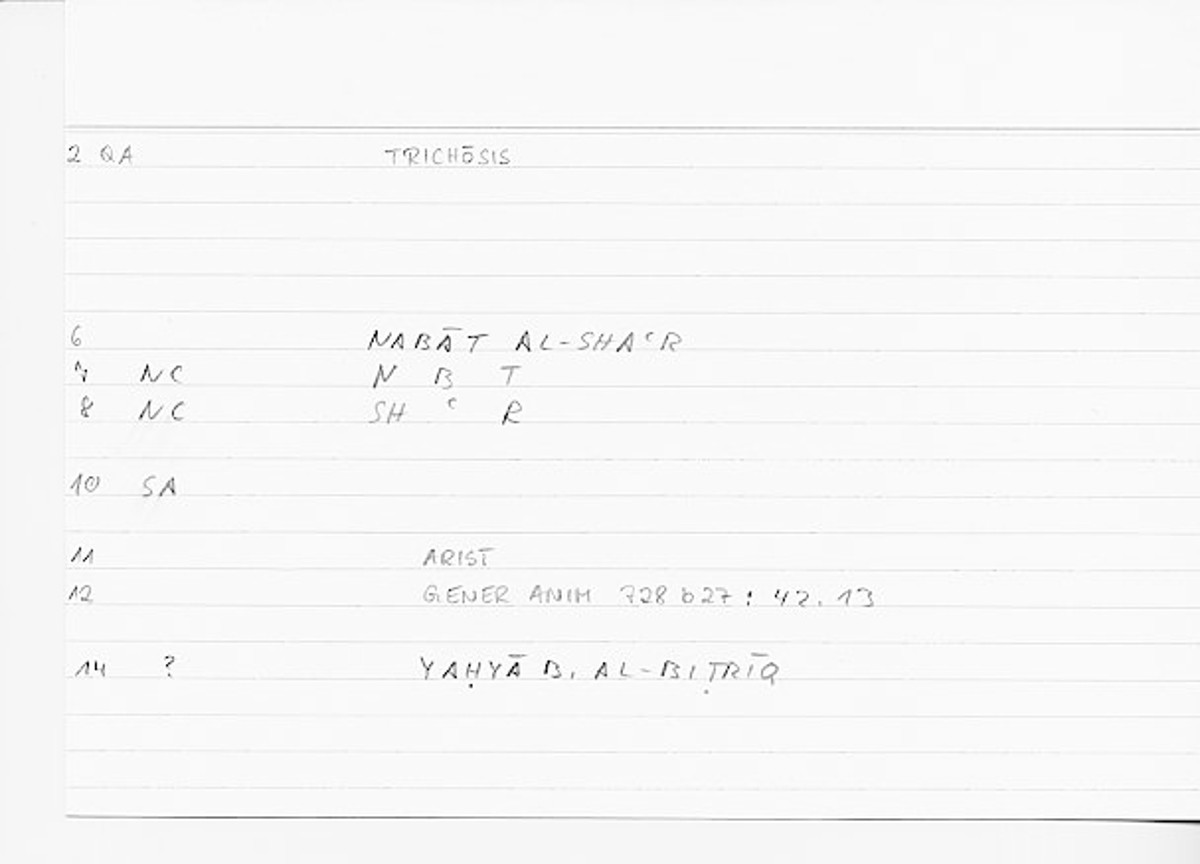 2 QA TRICHŌSIS
6 NABĀT AL-SHAʿR
7 NC N B T
8 NC SH ʿ R
10 SA
11 ARIST
12 GENER ANIM 728 b27 : 42.13
14 ? YAḤYĀ B. AL-BIṬRĪQ